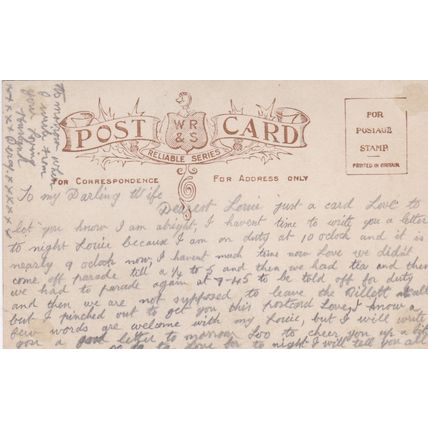 POST CARD
W R & S
RELIABLE SERIES
FOR CORRESPONDENCE
FOR ADDRESS ONLY
FOR
POSTAGE
STAMP
PRINTED IN BRITAIN.
To my Darling Wife
Dearest Louie just a card Love to
let you know I am alright, I havent time to write you a letter
to night Louie because I am on duty at 10 oclock and it is
nearly 9 oclock now, I havent much time now Love we didnt
come off parade till a 1/4 to 5 and then we had tea and then
we had to parade again at 7-45 to be told off for duty
and then we are not supposed to leave the Billett at all
but I pinched out to get you this postcard Love, I know a
few words are welcome with my Louie, but I will write
you a good letter to morrow Loo to cheer you up a bit
Love for to night I will tell you all
your loving
Husband